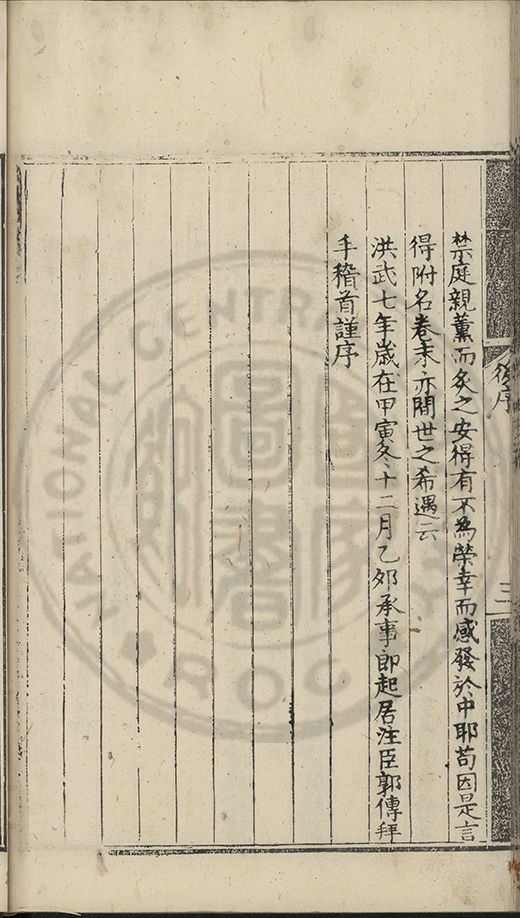 禁庭親薰而炙之安得有不為榮幸而感發於中耶苟因是言
得附名卷末亦間世之希遇云
洪武七年歲在甲寅冬十二月乙卯承事郎起居注臣郭傳拜
手稽首謹序
後序
三